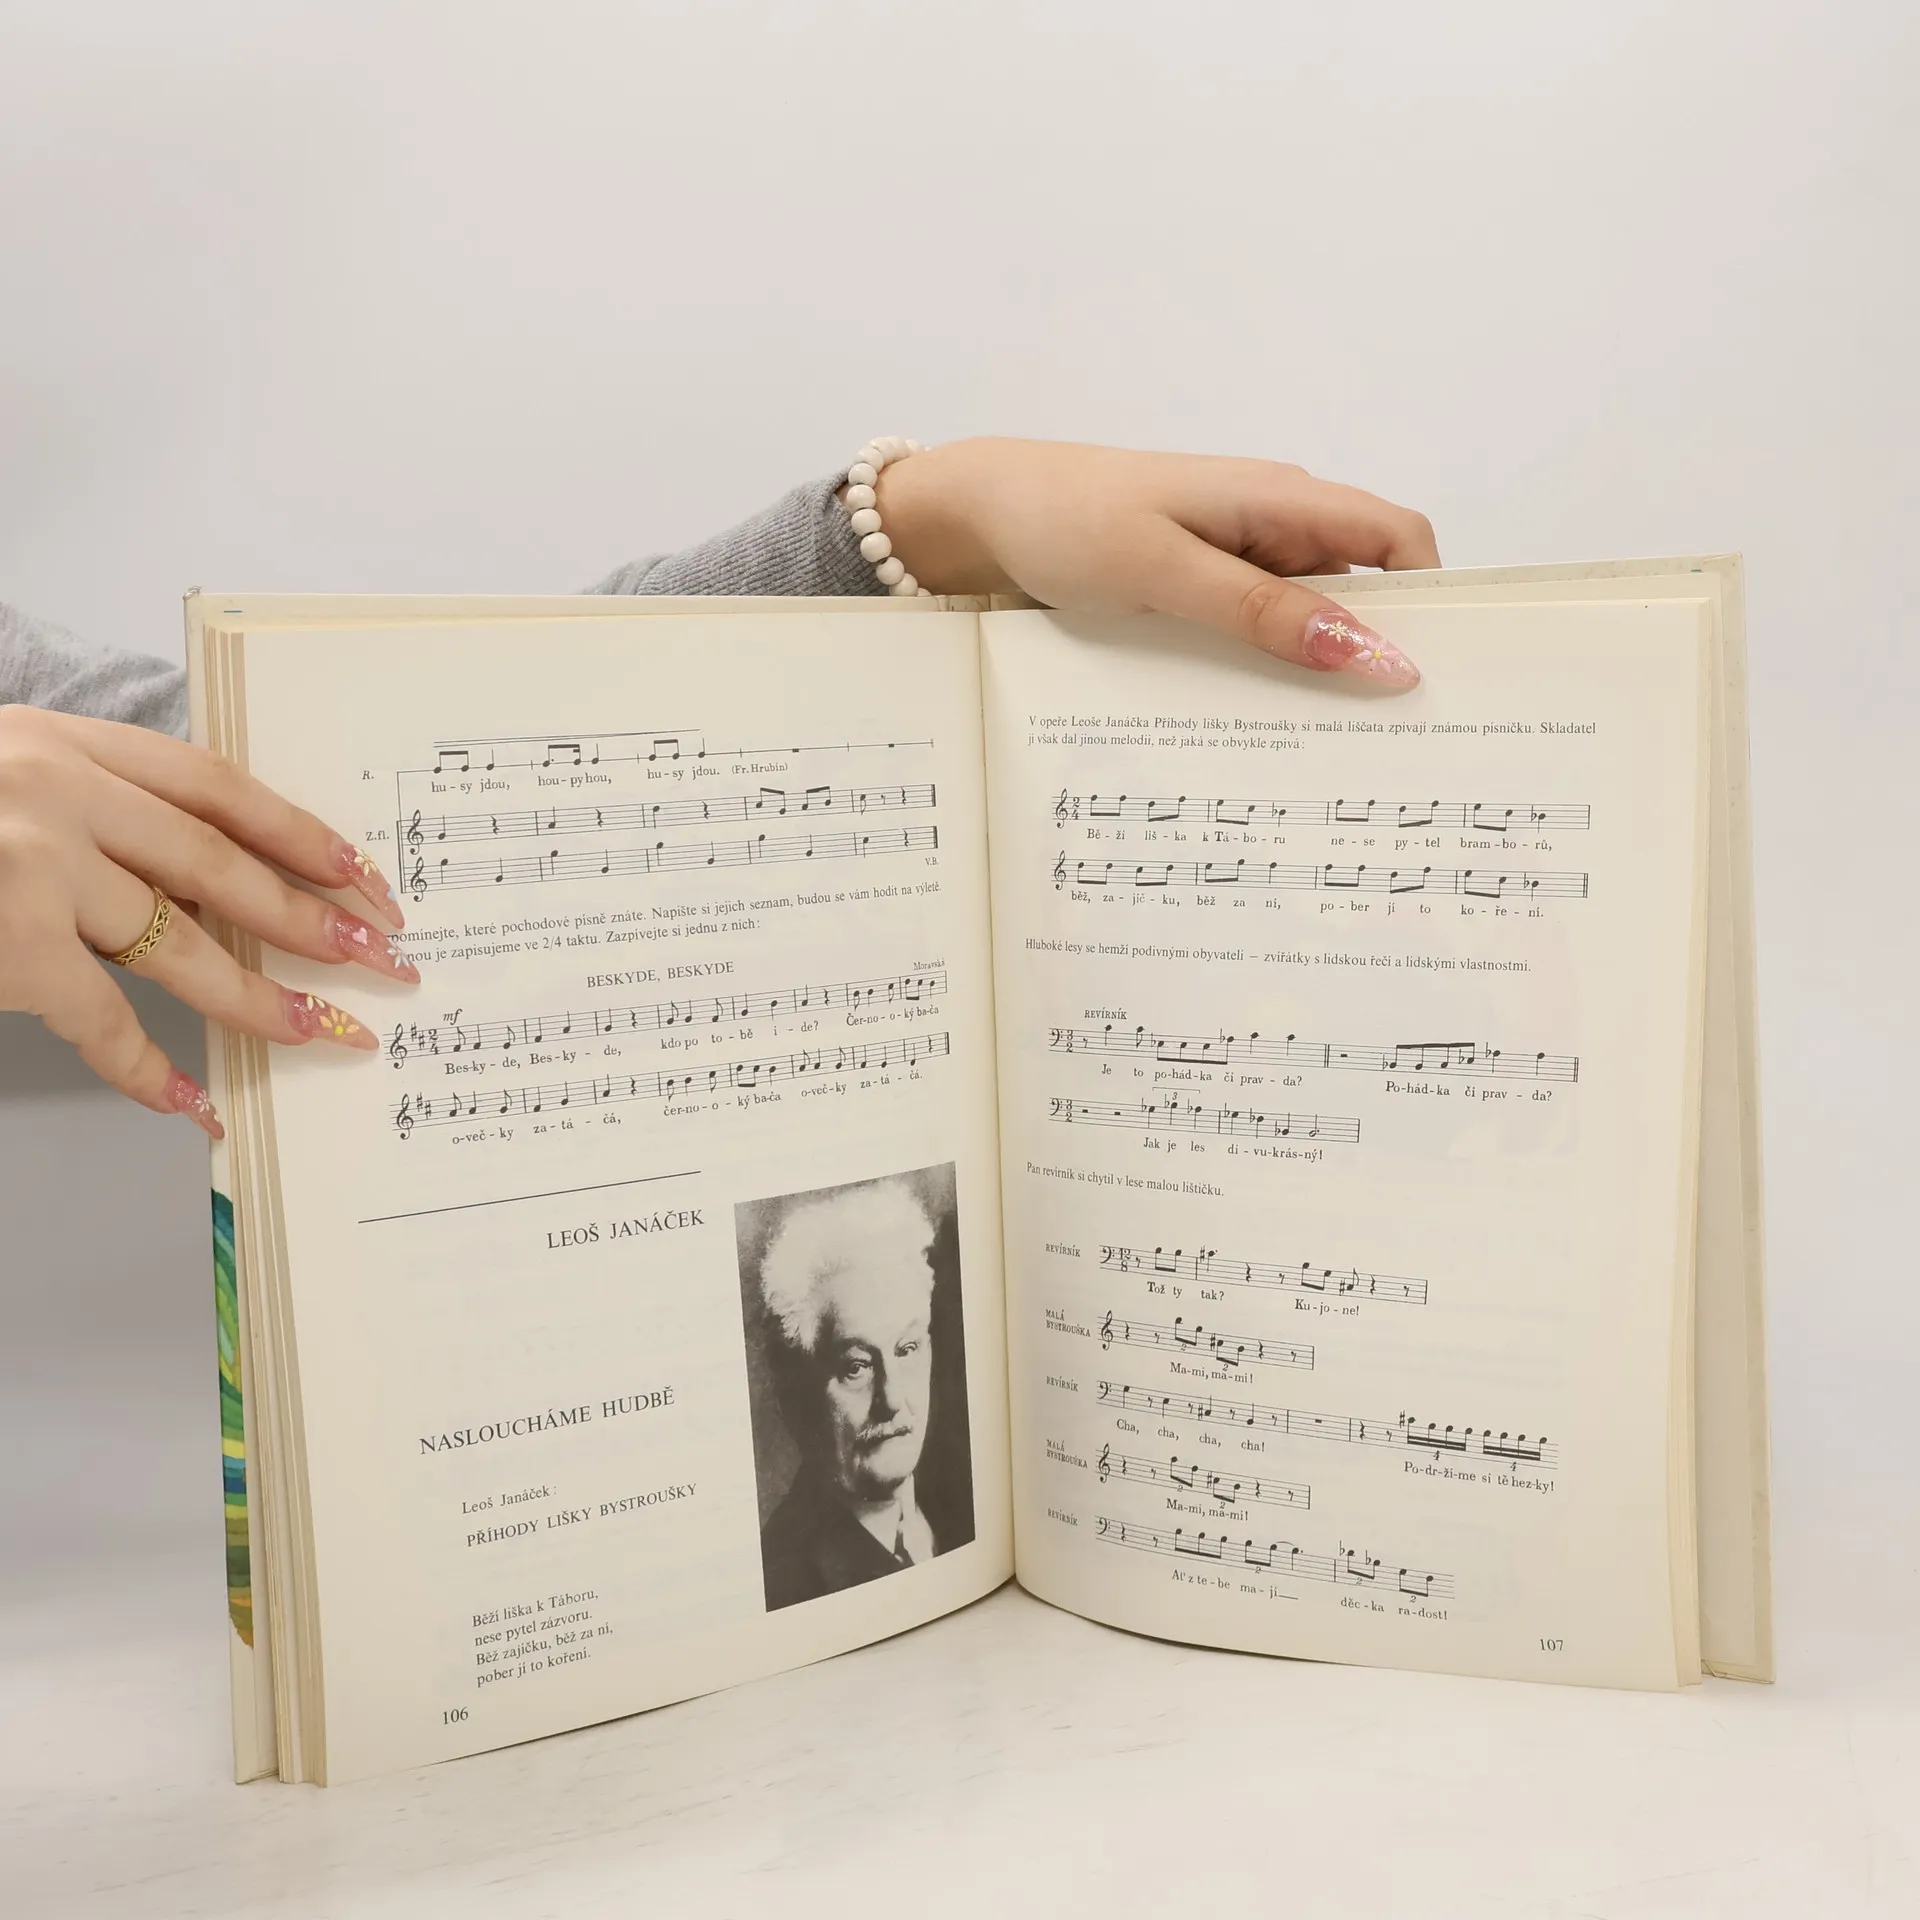 R.
hu-sy jdou, hou-py hou, hu-sy jdou. (Fr. Hrubín)
Z.fl.
V.B.
pomínejte, které pochodové písně znáte. Napište si jejich seznam, budou se vám hodit na výletě.
nou je zapisujeme ve 2/4 taktu. Zazpívejte si jednu z nich:
BESKYDE, BESKYDE
Moravská
mf
Bes-ky-de, Bes-ky-de, kdo po to-bě i-de? Čer-no-o-ký ba-ča
o-več-ky za-tá-čá, čer-no-o-ký ba-ča o-več-ky za-tá-čá.
LEOŠ JANÁČEK
NASLOUCHÁME HUDBĚ
Leoš Janáček:
PŘÍHODY LIŠKY BYSTROUŠKY
Běží liška k Táboru,
nese pytel zázvoru.
Běž zajíčku, běž za ní,
pober jí to koření.
106
V opeře Leoše Janáčka Příhody lišky Bystroušky si malá liščata zpívají známou písničku. Skladatel
jí však dal jinou melodii, než jaká se obvykle zpívá:
Bě-ží liš-ka k Tá-bo-ru ne-se py-tel bram-bo-rů,
běž, za-jíč-ku, běž za ní, po-ber jí to ko-ře-ní.
Hluboké lesy se hemží podivnými obyvateli — zvířátky s lidskou řečí a lidskými vlastnostmi.
REVÍRNÍK
Je to po-hád-ka či prav-da? Po-hád-ka či prav-da?
3
Jak je les di-vu-krás-ný!
Pan revírník si chytil v lese malou lištičku.
REVÍRNÍK
Tož ty tak? Ku-jo-ne!
MALÁ
BYSTROUŠKA
2 2
Ma-mi, ma-mi!
REVÍRNÍK
4 4
Cha, cha, cha, cha! Po-dr-ží-me si tě hez-ky!
MALÁ
BYSTROUŠKA
2 2
Ma-mi, ma-mi!
REVÍRNÍK
2 2 2
Ať z te-be ma-jí děc-ka ra-dost!
107